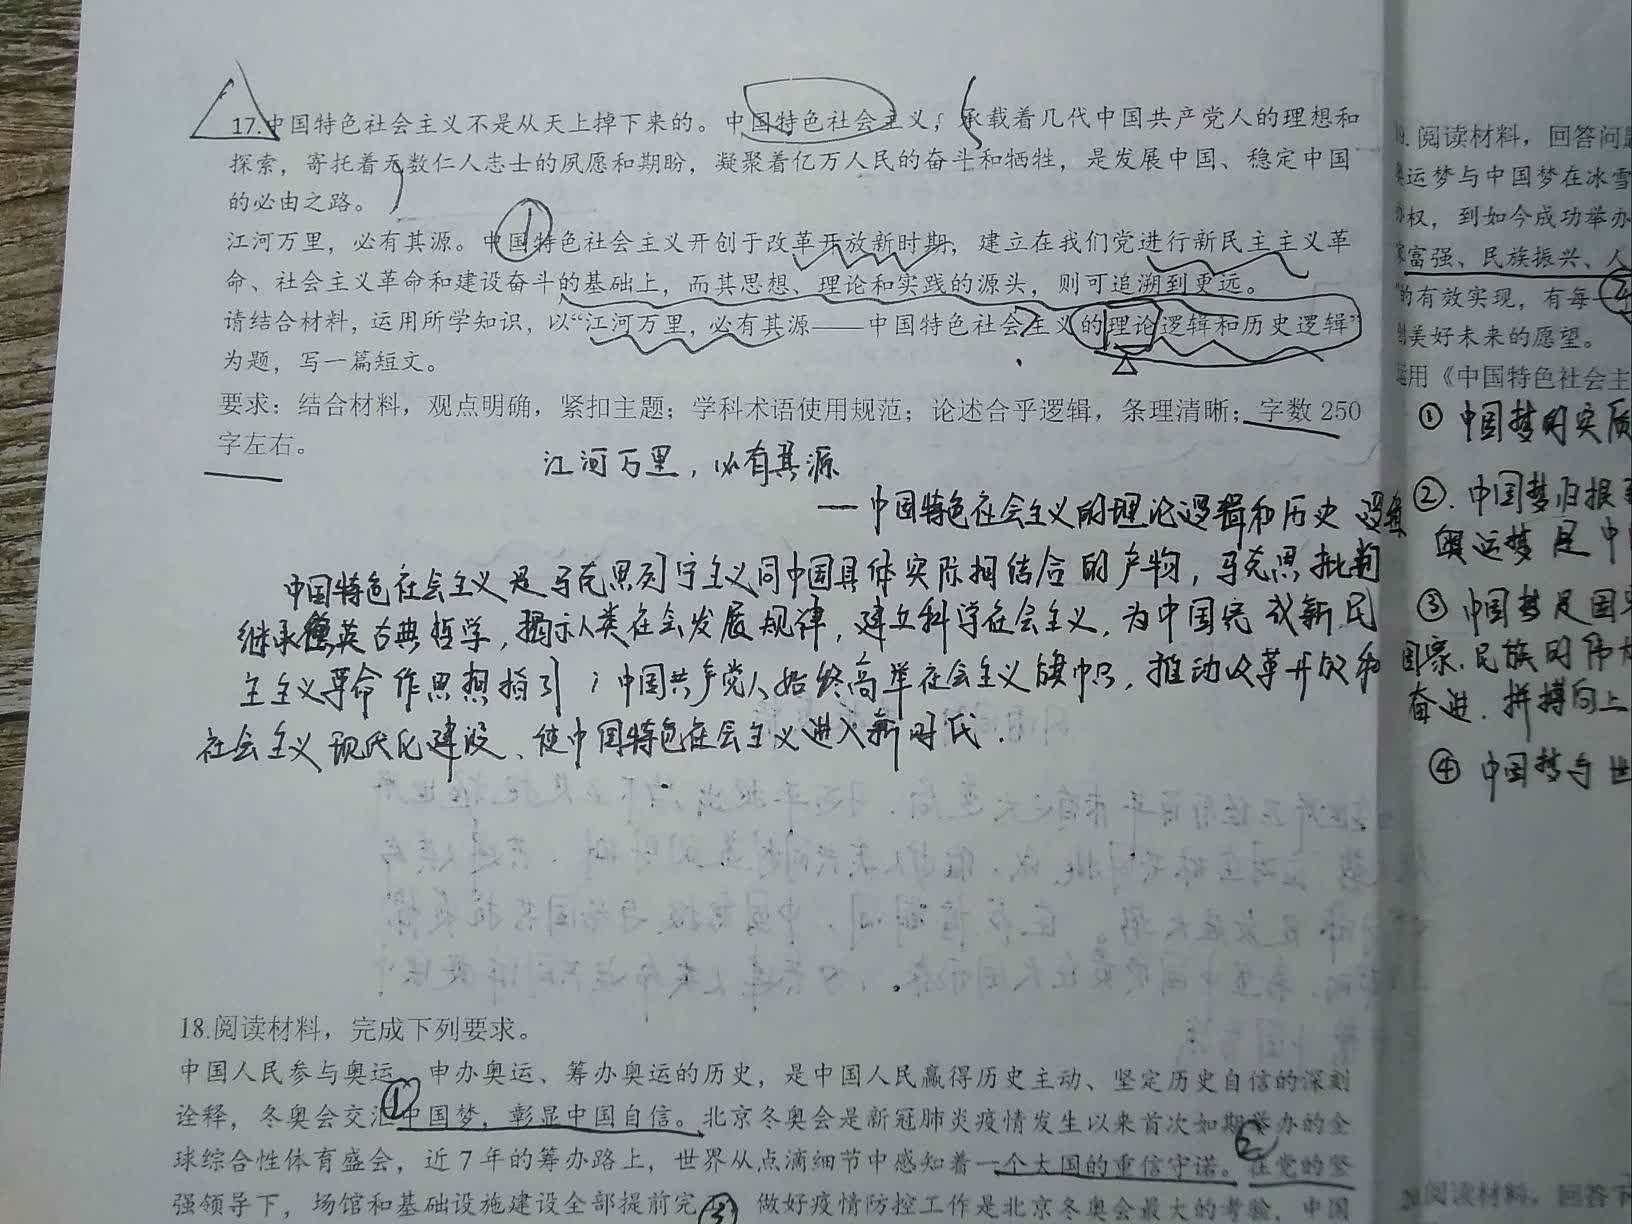 17.中国特色社会主义不是从天上掉下来的。中国特色社会主义,承载着几代中国共产党人的理想和
探索,寄托着无数仁人志士的夙愿和期盼,凝聚着亿万人民的奋斗和牺牲,是发展中国、稳定中国
的必由之路。
①
江河万里,必有其源。中国特色社会主义开创于改革开放新时期,建立在我们党进行新民主主义革
命、社会主义革命和建设奋斗的基础上,而其思想、理论和实践的源头,则可追溯到更远。
请结合材料,运用所学知识,以“江河万里,必有其源——中国特色社会主义的理论逻辑和历史逻辑”
为题,写一篇短文。
要求:结合材料,观点明确,紧扣主题;学科术语使用规范;论述合乎逻辑,条理清晰;字数 250
字左右。
江河万里,必有其源
—中国特色社会主义的理论逻辑和历史 逻辑
中国特色社会主义是马克思列宁主义同中国具体实际相结合的产物,马克思批判
继承德英古典哲学,揭示人类社会发展规律,建立科学社会主义,为中国完成新民
主主义革命作思想指引;中国共产党人始终高举社会主义旗帜,推动改革开放和
社会主义现代化建设、使中国特色社会主义进入新时代.
18.阅读材料,完成下列要求。
中国人民参与奥运、申办奥运、筹办奥运的历史,是中国人民赢得历史主动、坚定历史自信的深刻
诠释,冬奥会交汇①中国梦,彰显中国自信。北京冬奥会是新冠肺炎疫情发生以来首次如期举办的全
球综合性体育盛会,近 7 年的筹办路上,世界从点滴细节中感知着一个大国的重信守诺。②在党的坚
强领导下,场馆和基础设施建设全部提前完③做好疫情防控工作是北京冬奥会最大的考验,中国
阅读材料,回答问题
奥运梦与中国梦在冰雪
办权,到如今成功举办
富强、民族振兴、人
的有效实现,有每一②
美好未来的愿望。
运用《中国特色社会主
① 中国梦的实质
②.中国梦归根
奥运梦是中
③ 中国梦是国
国家.民族的伟大
奋进.拼搏向上
④ 中国梦与世
阅读材料,回答下